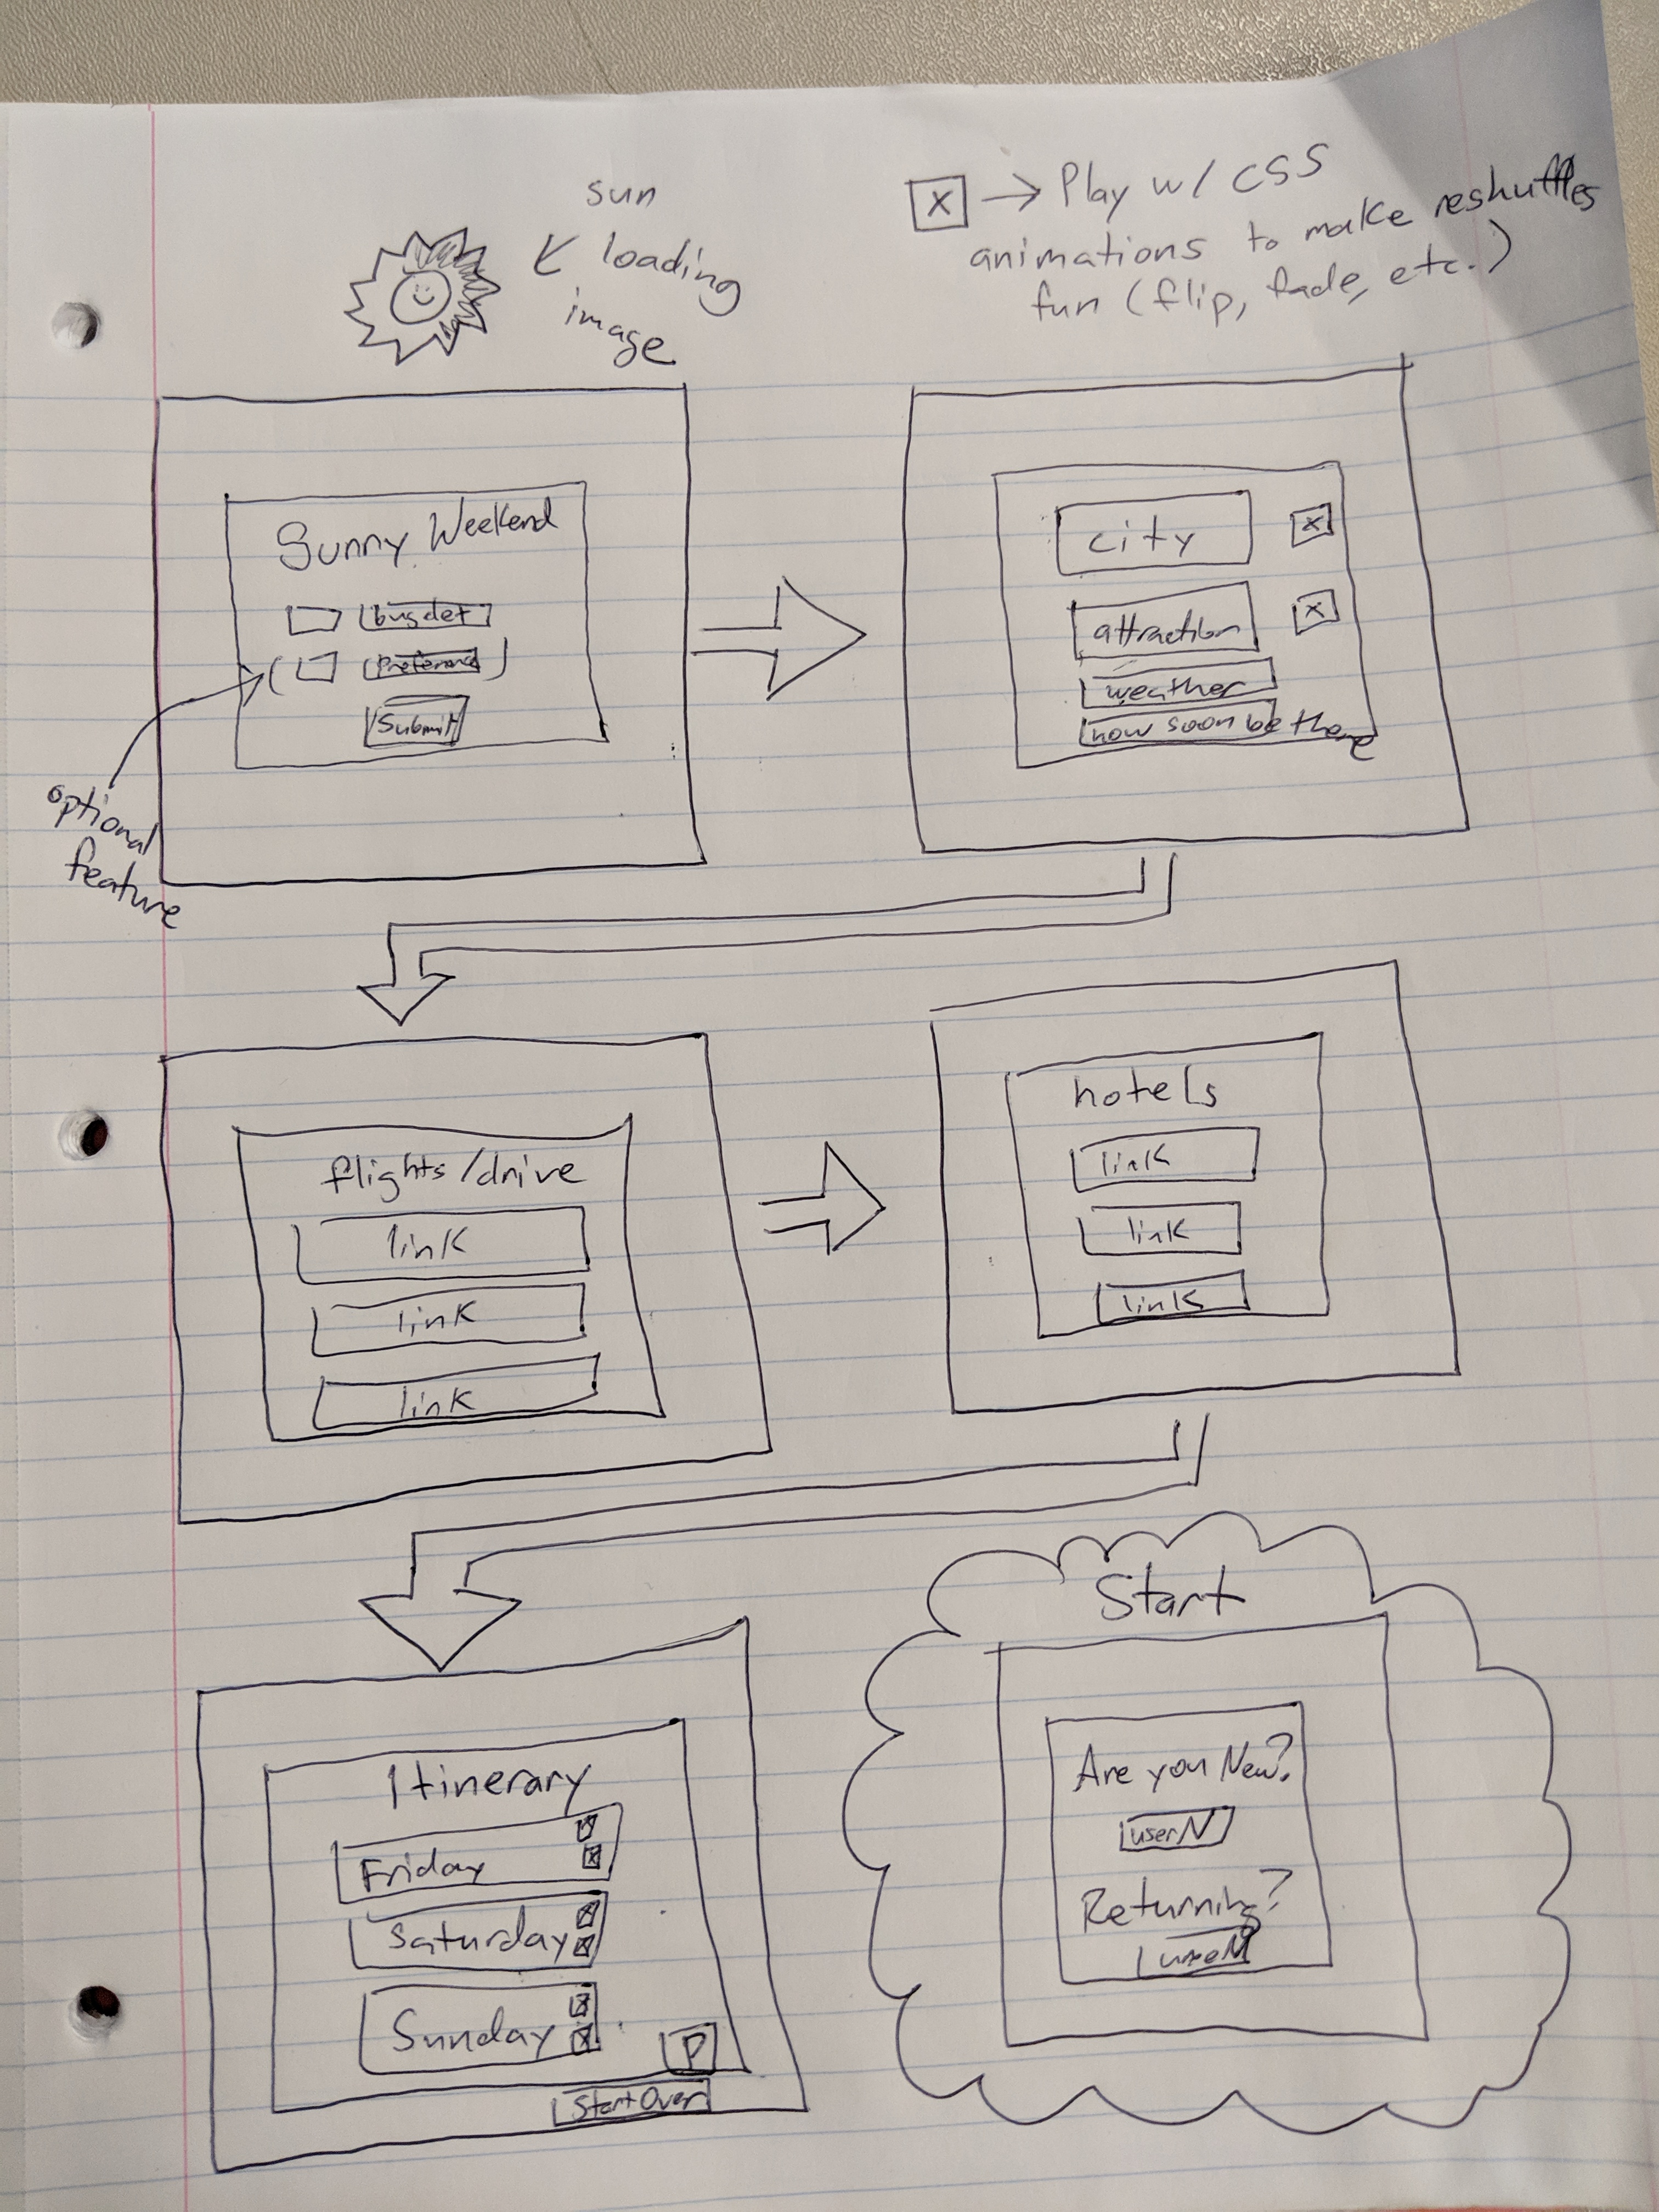 sun
loading
image
X → Play w/ CSS
animations to make reshuffles
fun (flip, fade, etc.)
Sunny Weekend
bugdet
(Preference)
Submit
optional
feature
city X
attraction X
weather
how soon be there
flights/drive
link
link
link
hotels
link
link
link
Itinerary
Friday X
Saturday X
Sunday X
P
Start Over
Start
Are you New?
userN
Returning?
userN